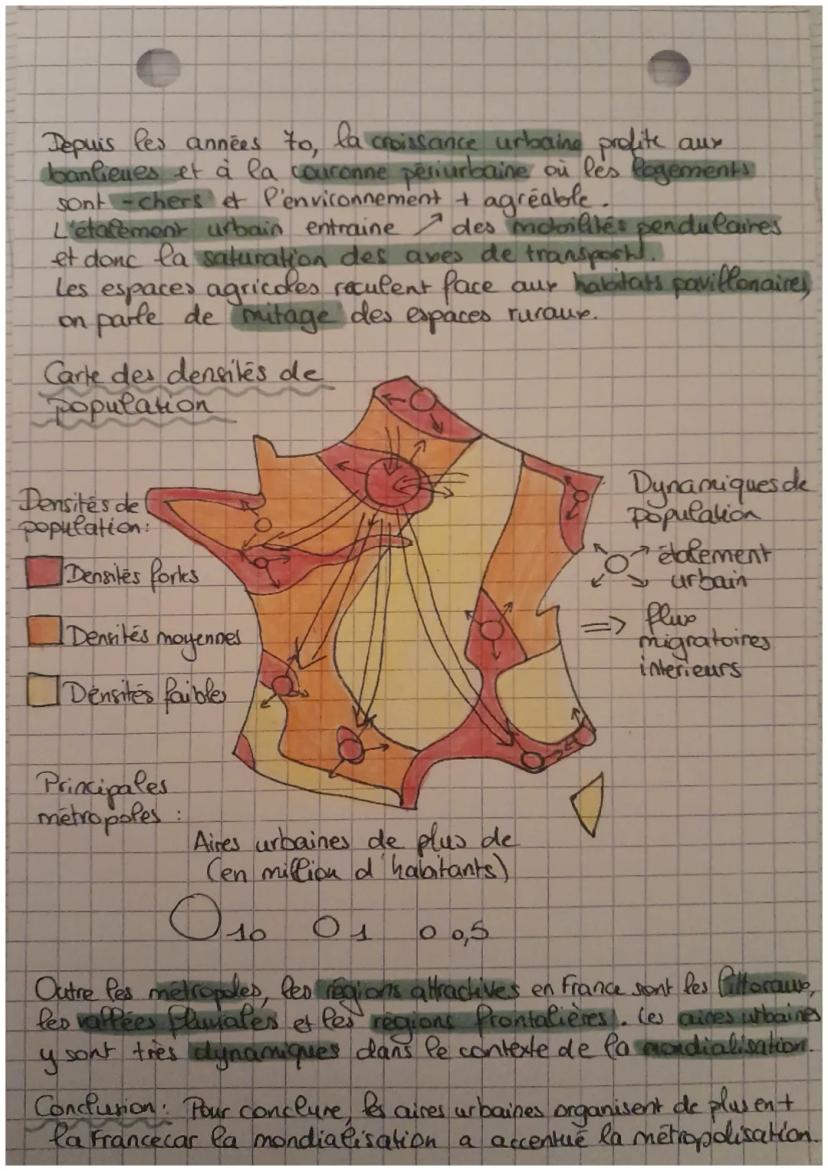 Depuis les années 70, la croissance urbaine profite aux
banlieues et à la couronne périurbaine où les logements
sont - chers et l'environnement + agréable.
L'étalement urbain entraine ↗ des mobilités pendulaires
et donc la saturation des axes de transport.
Les espaces agricoles reculent face aux habitats pavillonaires,
on parle de mitage des espaces ruraux.
Carte des densités de
population
Densités de
population:
Densités fortes
Densités moyennes
Densités faibles
Dynamiques de
population
étalement
urbain
=> flux
migratoires
interieurs
Principales
métropoles :
Aires urbaines de plus de
(en million d'habitants)
10 1 0,5
Outre les métropoles, les régions attractives en France sont les littoraux,
les vallées fluviales et les régions frontalières. Les aires urbaines
y sont très dynamiques dans le contexte de la mondialisation.
Conclusion: Pour conclure, les aires urbaines organisent de plus en +
la France car la mondialisation a accentué la métropolisation.